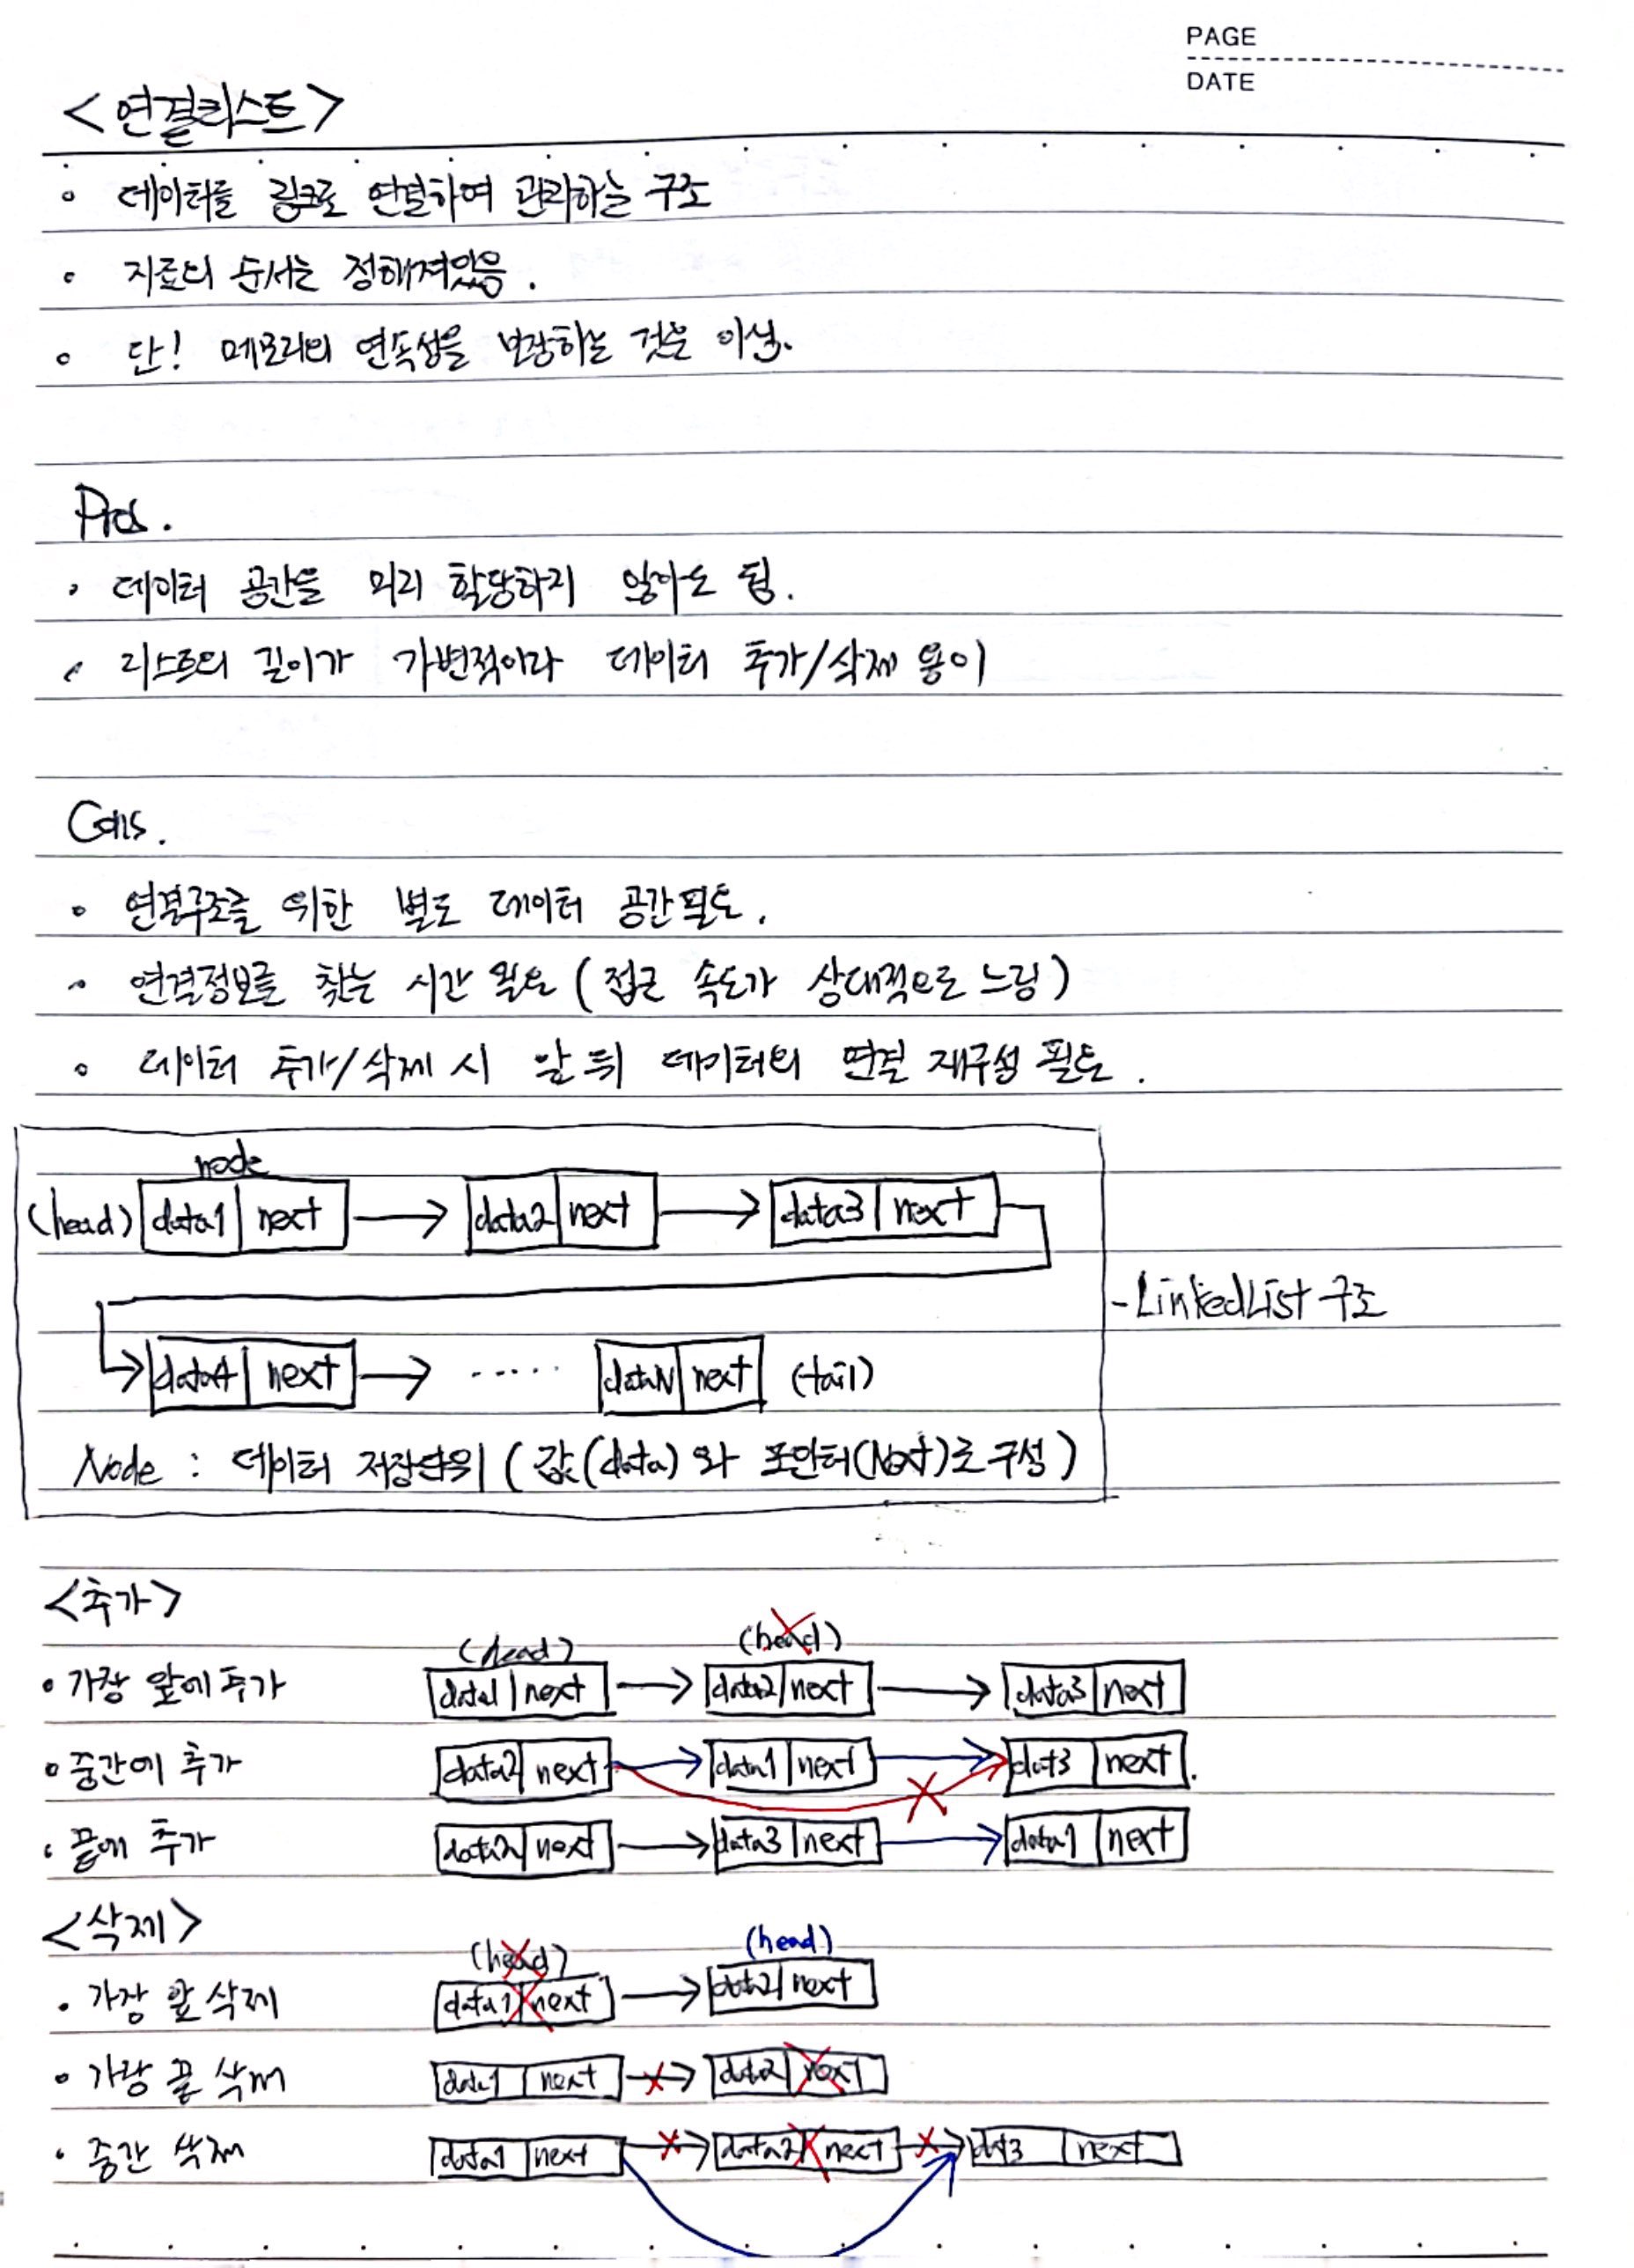 PAGE
DATE
<연결리스트>
◦ 데이터를 링크로 연결하여 관리하는 구조
◦ 자료의 순서는 정해져있음.
◦ 단! 메모리의 연속성을 보장하는 것은 아님.
Pros.
◦ 데이터 공간을 미리 할당하지 않아도 됨.
◦ 리스트의 길이가 가변적이라 데이터 추가/삭제 용이
Cons.
◦ 연결구조를 위한 별도 데이터 공간 필요.
◦ 연결정보를 찾는 시간 필요 (접근 속도가 상대적으로 느림)
◦ 데이터 추가/삭제 시 앞 뒤 데이터의 연결 재구성 필요.
node
(head) data1 | next → data2 | next → data3 | next
- LinkedList 구조
data4 | next → ····· dataN | next (tail)
Node : 데이터 저장단위 (값(data) 와 포인터(Next)로 구성)
<추가>
(head) (head)
• 가장 앞에 추가 data1 | next → data2 | next → data3 | next
• 중간에 추가 data2 | next → data1 | next → dat3 | next.
• 끝에 추가 data2 | next → data3 | next → data1 | next
<삭제>
(head) (head)
• 가장 앞 삭제 data1 | next → data2 | next
• 가장 끝 삭제 data1 | next → data2 | next
• 중간 삭제 data1 | next → data2 | next → dat3 | next